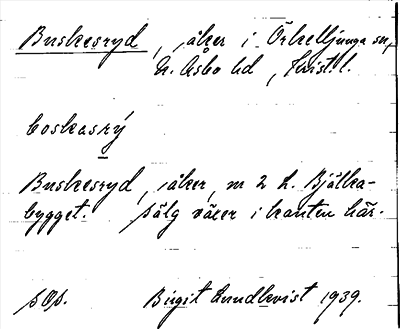 Buskesryd, åker i Örkelljunga sn,
N. Åsbo hd, Krist. l.
boskasrý
Buskesryd, åker, m 2 L. Bjälka-
bygget. Sälg växer i kanten här.
sOp. Birgit Lundkvist 1939.